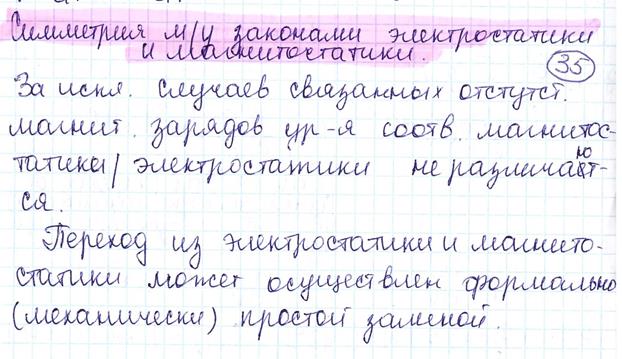 Симметрия м/у законами электростатики
и магнитостатики.
35
За искл. случаев связанных отстутст.
магнит. зарядов ур-я соотв. магнитос-
татики/электростатики не различают-
ся.
Переход из электростатики и магнито-
статики может осуществлен формально
(механически) простой заменой.